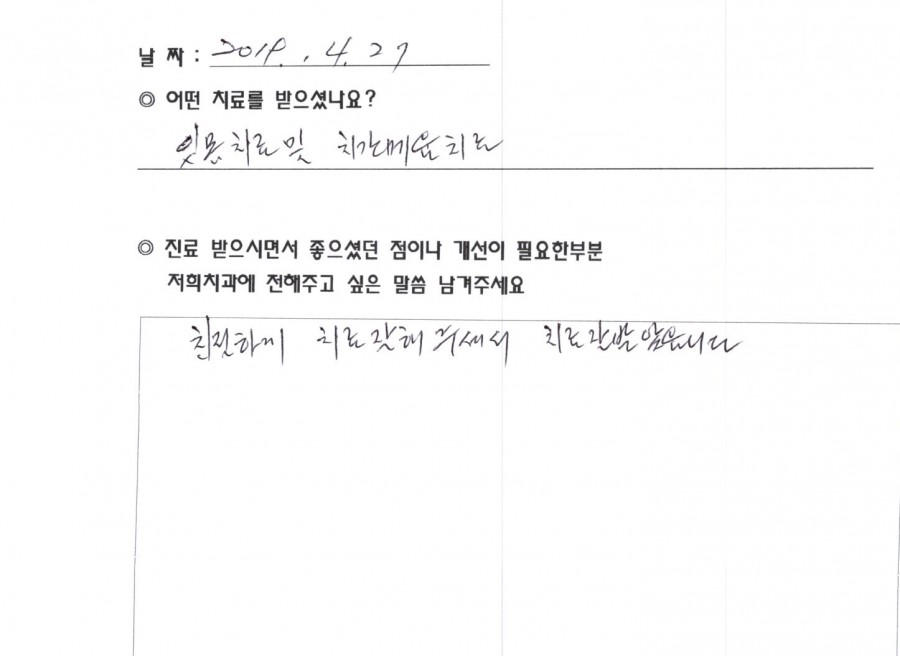 날 짜 : 2019. 4. 27
◎ 어떤 치료를 받으셨나요?
잇몸치료 및 치간메움치료
◎ 진료 받으시면서 좋으셨던 점이나 개선이 필요한부분
저희치과에 전해주고 싶은 말씀 남겨주세요
친절하게 치료 잘해 주셔서 치료 잘받았습니다